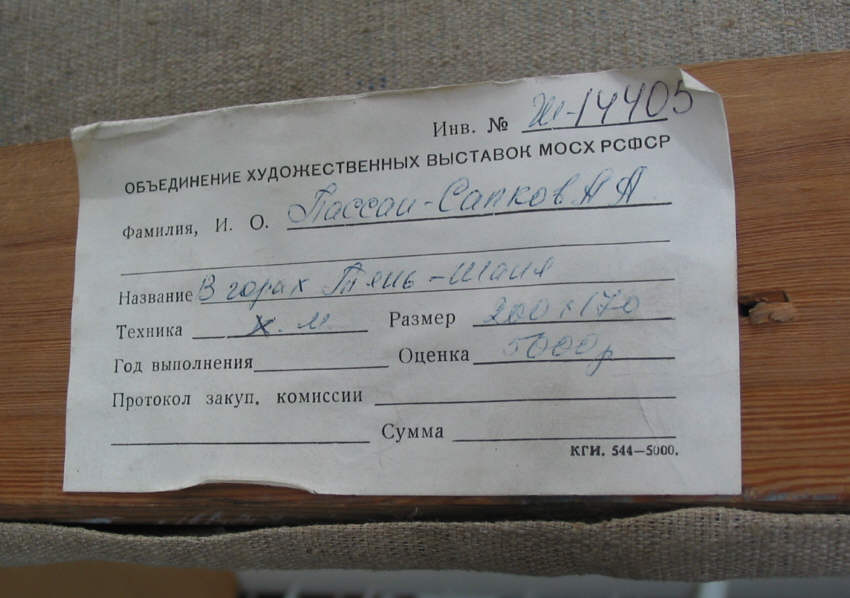 Инв. № Ж-14405
ОБЪЕДИНЕНИЕ ХУДОЖЕСТВЕННЫХ ВЫСТАВОК МОСХ РСФСР
Фамилия, И. О. Пассаи-Сапков А А
Название В горах Тянь-Шаня
Техника х. м Размер 200х170
Год выполнения Оценка 5000р
Протокол закуп. комиссии
Сумма
КГИ. 544—5000.